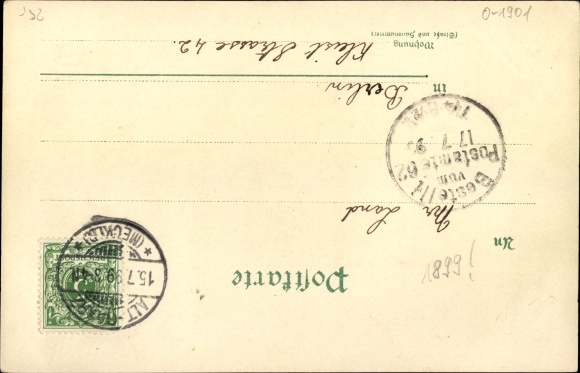 Postkarte
1899!
An
Land
in
Berlin
Wohnung
(Straße und Hausnummer)
Kleist Strasse 42.
Bestellt
vom
Postamte 62
17.7.99
(MECKLB)
15.7.99
ALT-
0-1901